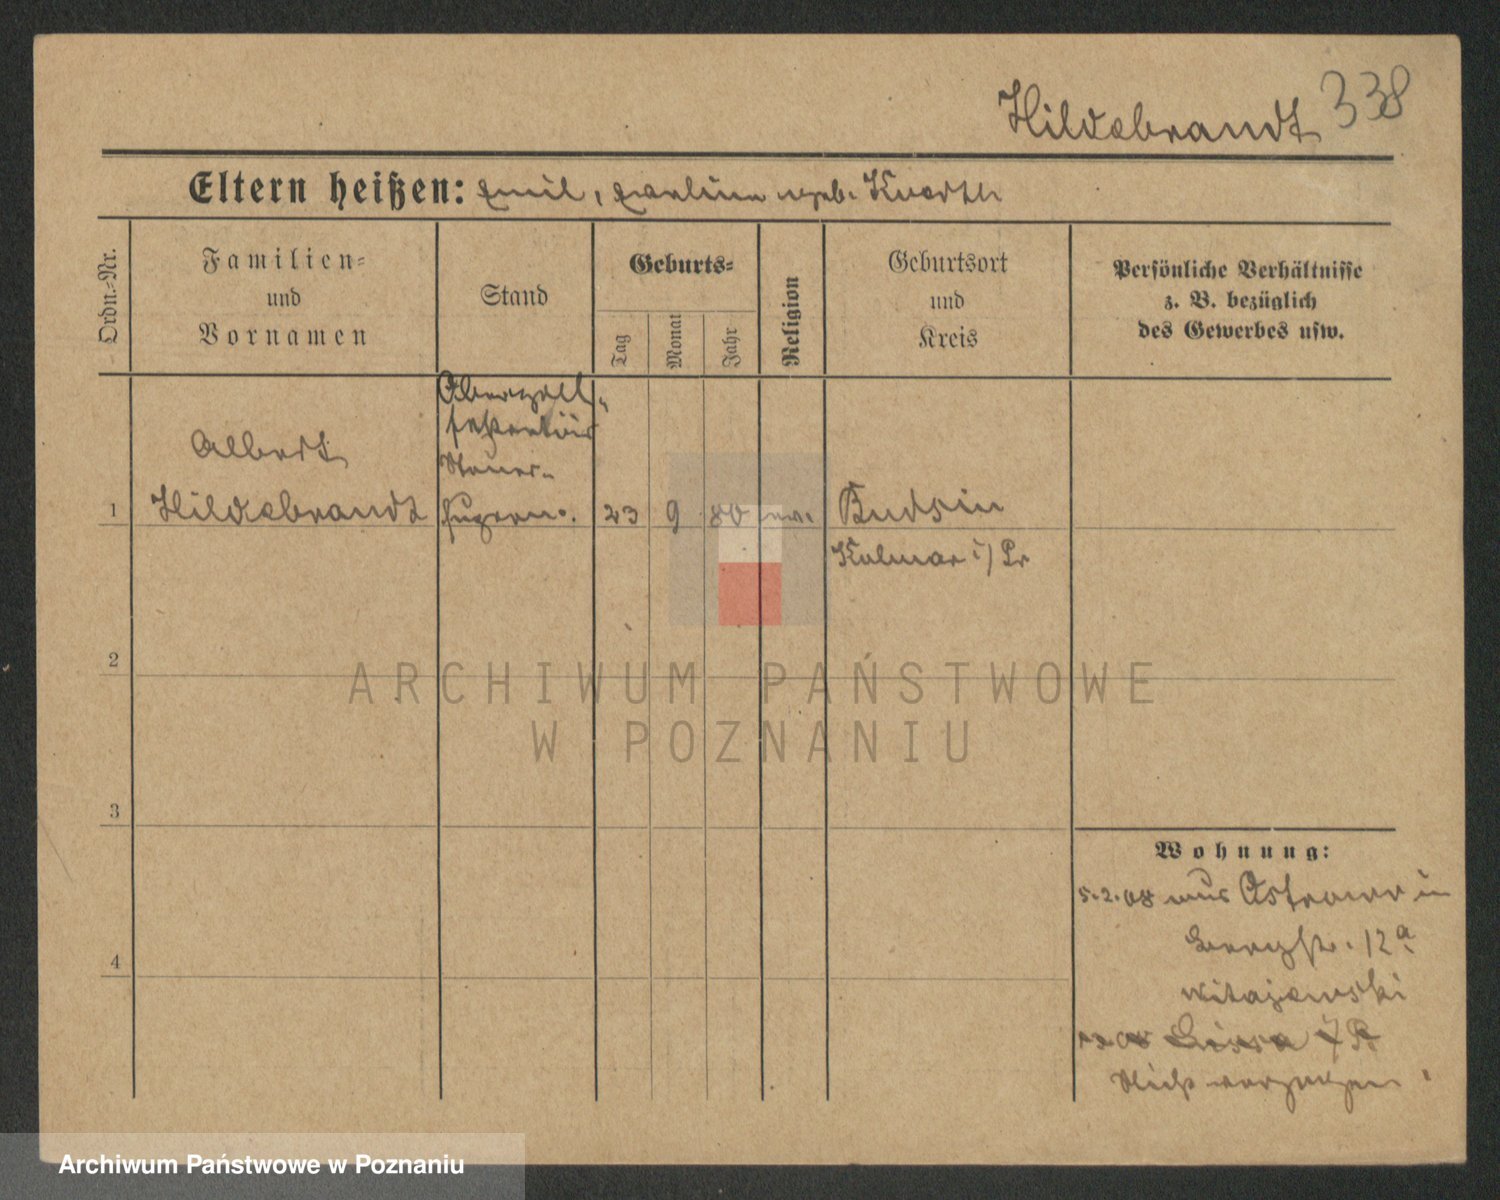 Hildebrandt 338
Eltern heißen: Emil, geb. Knorth
Ordn.-Nr.
Familien-
und
Vornamen
Stand
Geburts-
Tag
Monat
Jahr
Religion
Geburtsort
und
Kreis
Persönliche Verhältnisse
z. B. bezüglich
des Gewerbes usw.
Oberzoll-
sekretär
Steuer-
1
Albert
Hildebrandt
23 9 80 ev.
Budsin
Kolmar i/ Pr
2
3
4
Wohnung:
5.2.08 aus Ostrowo in
Bergstr. 12a
Witajewski
08 Lissa i/P
Nicht
ARCHIWUM PAŃSTWOWE
W POZNANIU
Archiwum Państwowe w Poznaniu